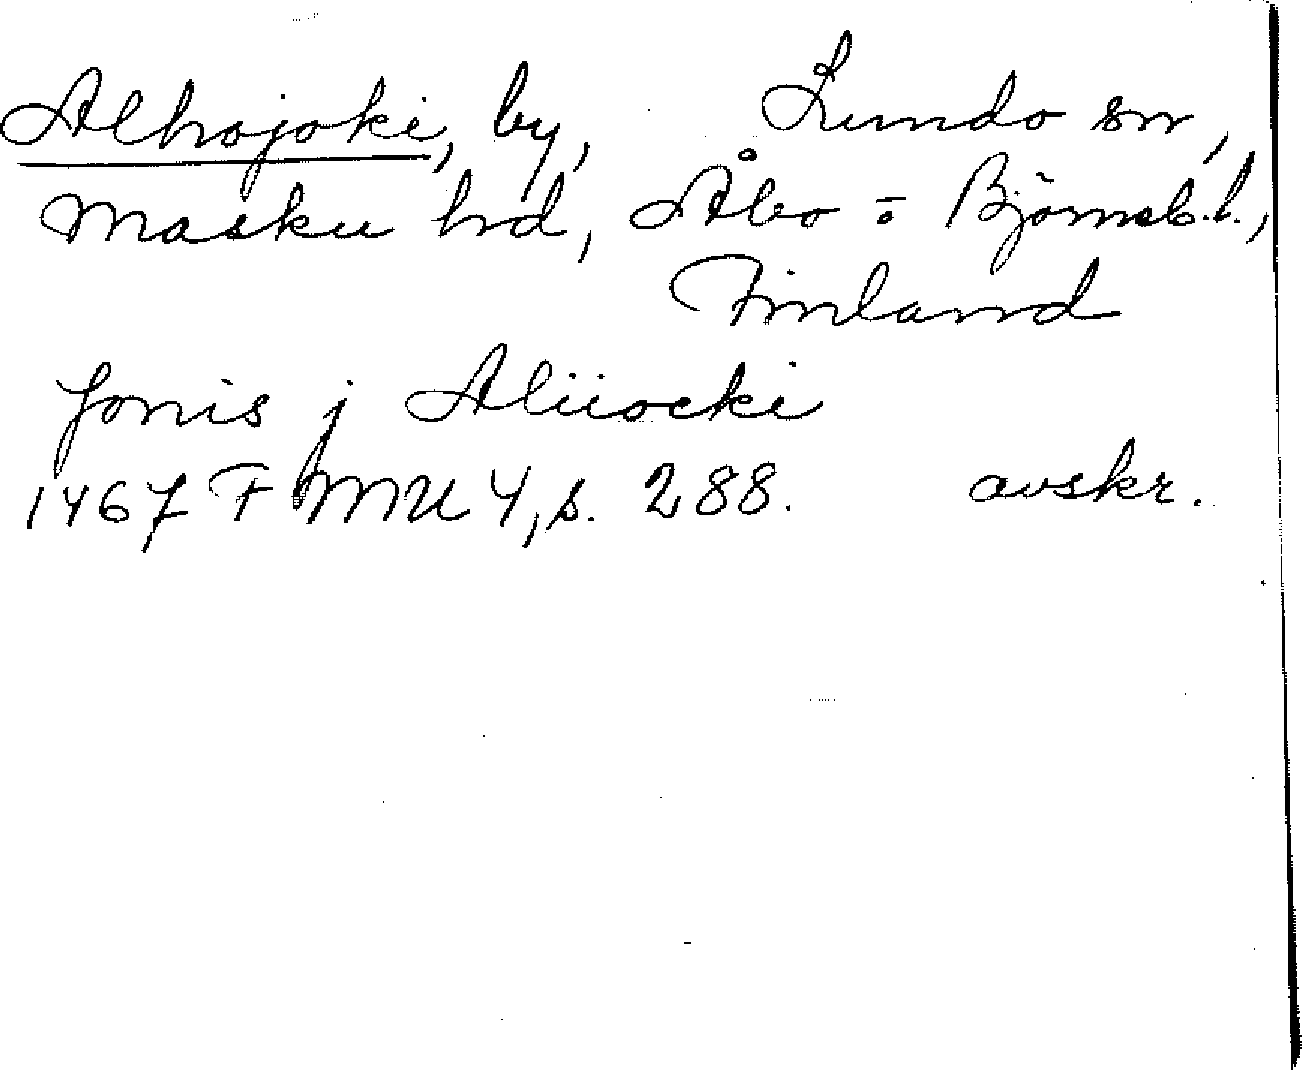 Alhojoki, by, Lundo sn,
Masku hd, Åbo o Björneb. l.,
Finland
Jonis j Aliiocki
1467 FMU 4, s. 288. avskr.